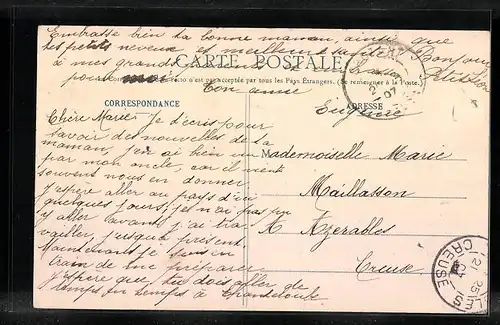 Embrasse bien ta bonne maman, ainsi que
tes petits neveux et meilleure santé Bonjour
à mes grands
CARTE POSTALE
pour moi Ton amie
pas acceptée par tous les Pays Étrangers. (Se renseigner à la Poste).
Eugénie
CORRESPONDANCE
ADRESSE
Chère Marie Je t'écris pour
savoir des nouvelles de ta
maman, j'en ai bien eu
par mon oncle, car il vient
souvent nous en donner
j'espère aller au pays d'ici
quelques jours, je n'ai pas pu
y aller avant j'ai tra-
vailler, jusqu'à présent
Maintenant je suis en
train de me préparer
J'espère que tu dois aller de
temps en temps à
Mademoiselle Marie
Maillasson
à Azerables
Creuse
07
CREUSE